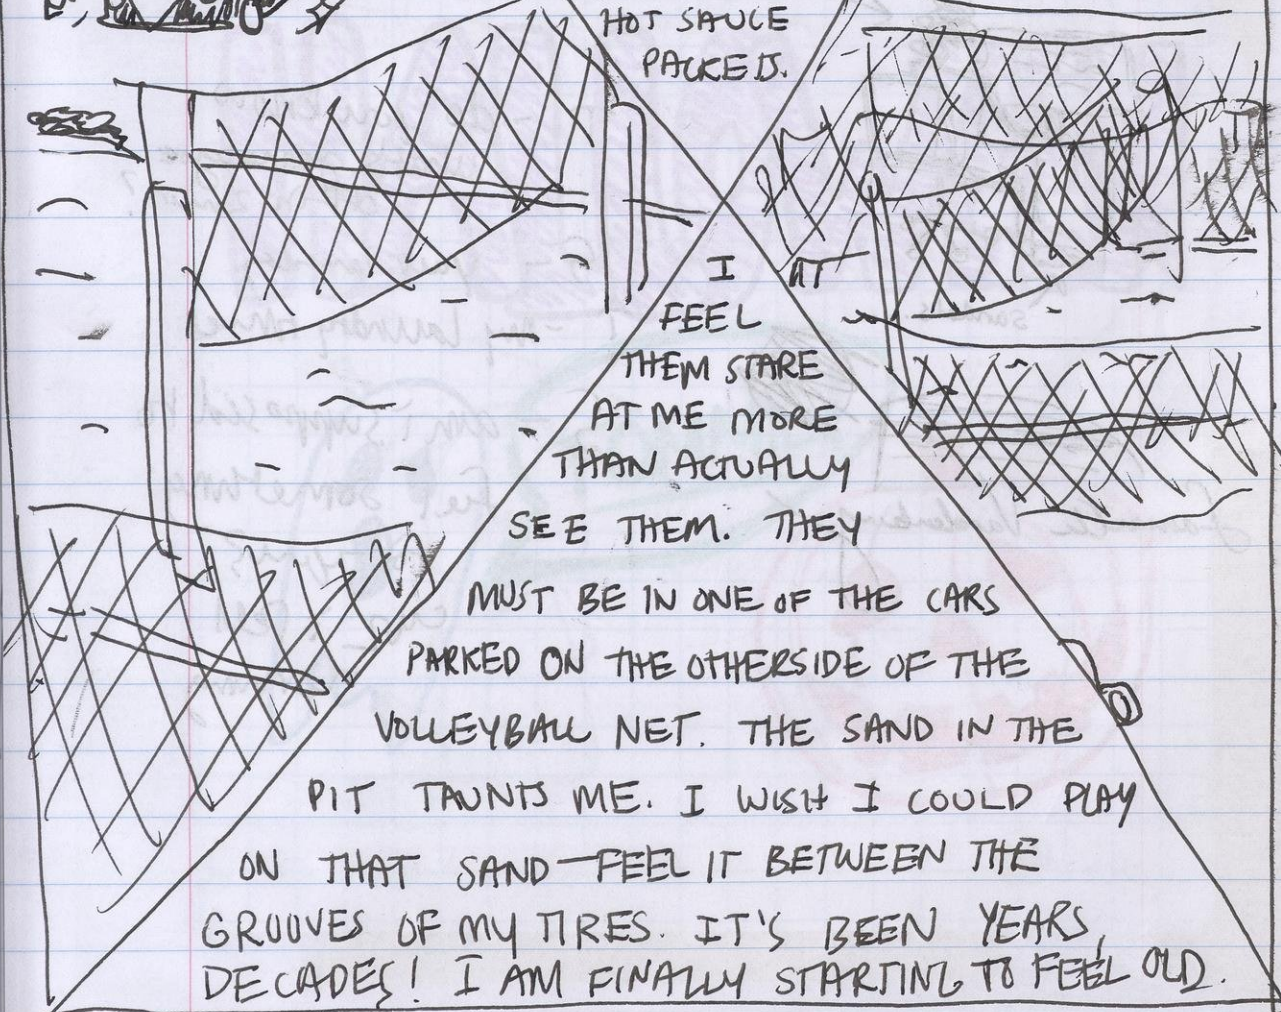 HOT SAUCE
PACKETS.
I
FEEL
THEM STARE
AT ME MORE
THAN ACTUALLY
SEE THEM. THEY
MUST BE IN ONE OF THE CARS
PARKED ON THE OTHERSIDE OF THE
VOLLEYBALL NET. THE SAND IN THE
PIT TAUNTS ME. I WISH I COULD PLAY
ON THAT SAND—FEEL IT BETWEEN THE
GROOVES OF MY TIRES. IT'S BEEN YEARS,
DECADES! I AM FINALLY STARTING TO FEEL OLD.